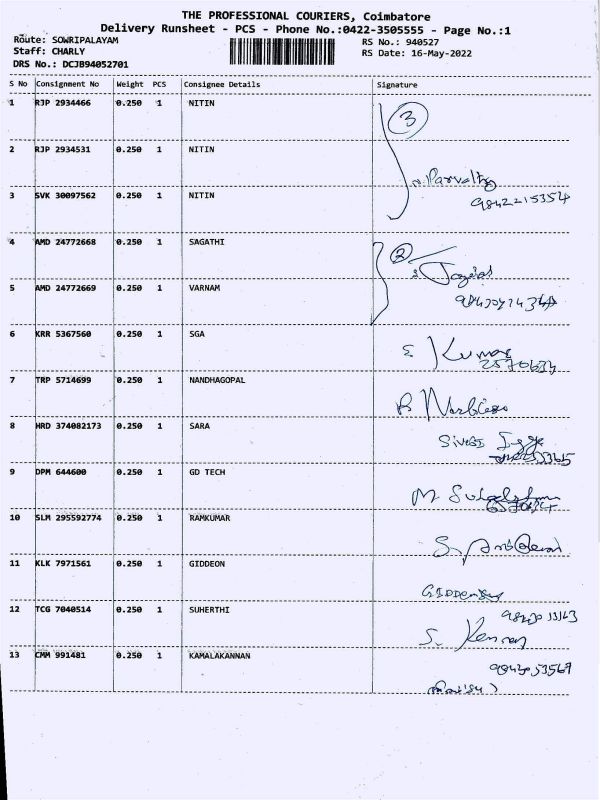 THE PROFESSIONAL COURIERS, Coimbatore
Delivery Runsheet - PCS - Phone No.:0422-3505555 - Page No.:1
Route: SOWRIPALAYAM RS No.: 940527
Staff: CHARLY RS Date: 16-May-2022
DRS No.: DCJB94052701
S No Consignment No Weight PCS Consignee Details Signature
1 RJP 2934466 0.250 1 NITIN 3
2 RJP 2934531 0.250 1 NITIN
N. Parvathy
3 SVK 30097562 0.250 1 NITIN
9842215354
4 AMD 24772668 0.250 1 SAGATHI 2
5 AMD 24772669 0.250 1 VARNAM
6 KRR 5367560 0.250 1 SGA
Kumar
7 TRP 5714699 0.250 1 NANDHAGOPAL
8 HRD 374082173 0.250 1 SARA
9 DPM 644600 0.250 1 GD TECH
10 SLM 295592774 0.250 1 RAMKUMAR
11 KLK 7971561 0.250 1 GIDDEON
12 TCG 7040514 0.250 1 SUHERTHI
13 CMM 991481 0.250 1 KAMALAKANNAN